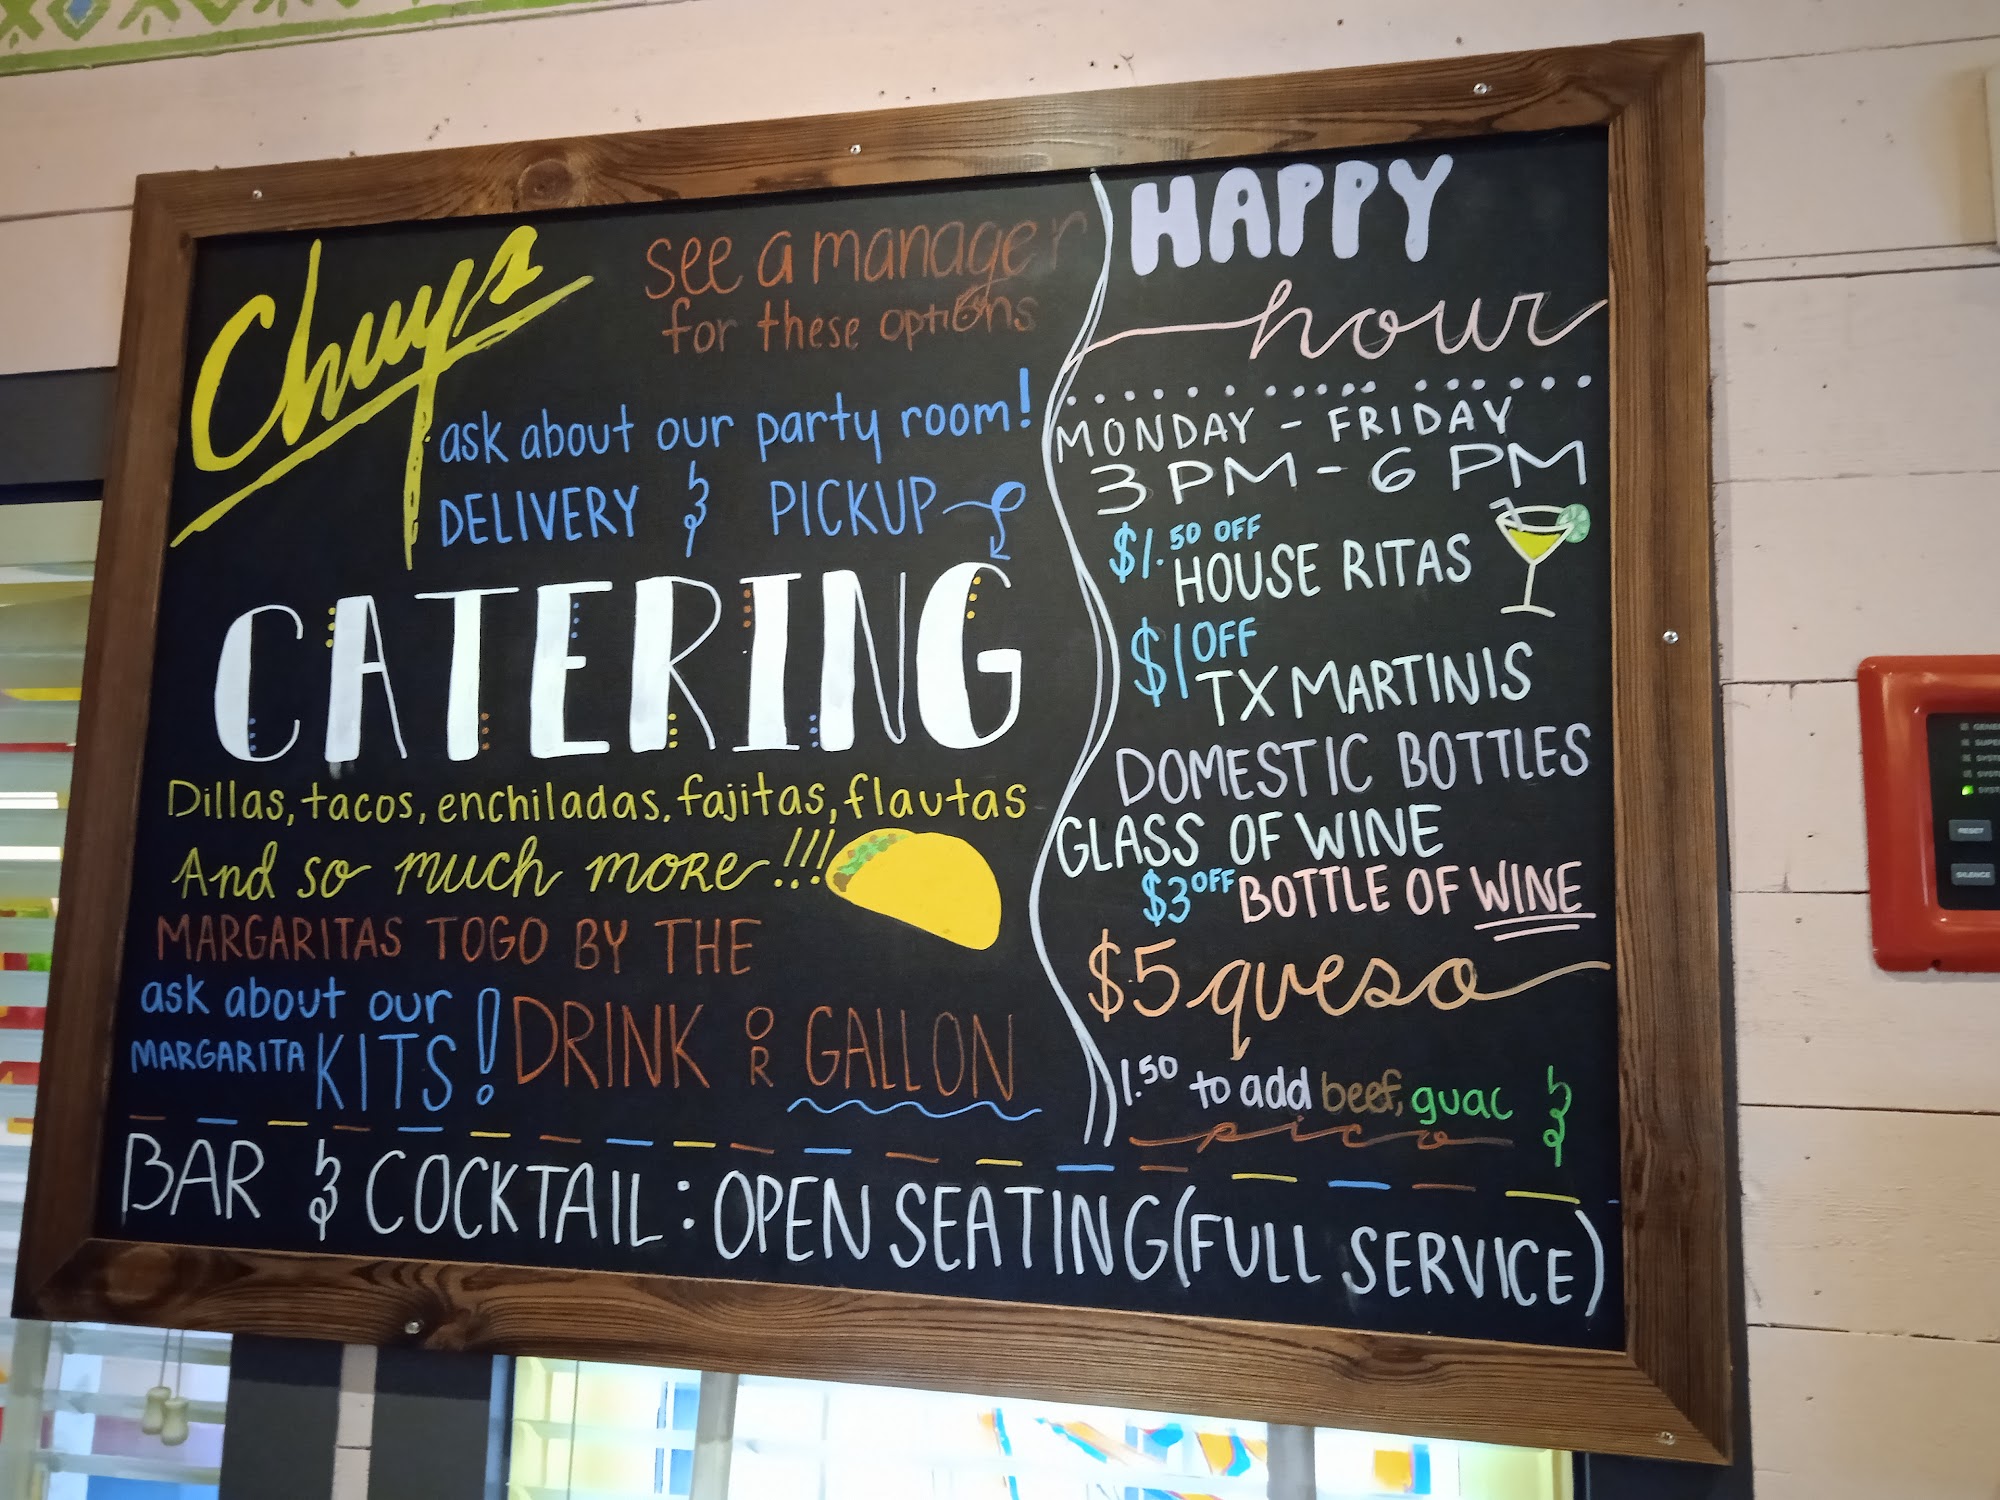 Chuys
see a manager
for these options
ask about our party room!
DELIVERY & PICKUP
CATERING
Dillas, tacos, enchiladas, fajitas, flautas
And so much more!!!
MARGARITAS TOGO BY THE
DRINK OR GALLON
ask about our
MARGARITA KITS!
HAPPY
hour
MONDAY - FRIDAY
3PM - 6PM
$1.50 OFF
HOUSE RITAS
$1 OFF
TX MARTINIS
DOMESTIC BOTTLES
GLASS OF WINE
$3 OFF BOTTLE OF WINE
$5 queso
1.50 to add beef, guac &
pico
BAR & COCKTAIL: OPEN SEATING (FULL SERVICE)
RESET
SILENCE